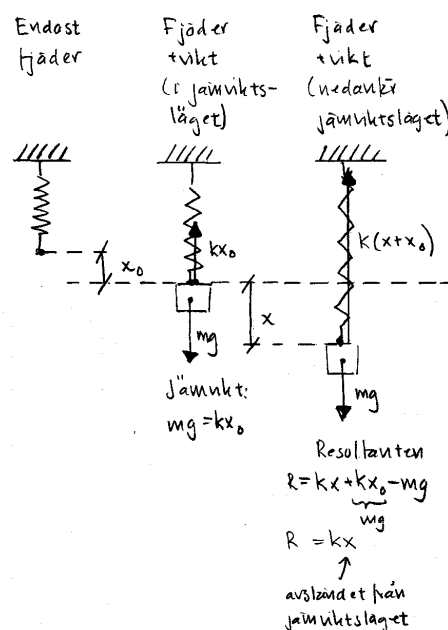 Endast
fjäder
Fjäder
+vikt
(i jämvikts-
läget)
Fjäder
+vikt
(nedanför
jämviktsläget)
x₀
kx₀
mg
Jämvikt:
mg = kx₀
x
k(x+x₀)
mg
Resultanten
R = kx + kx₀ - mg
mg
R = kx
avståndet från
jämviktsläget